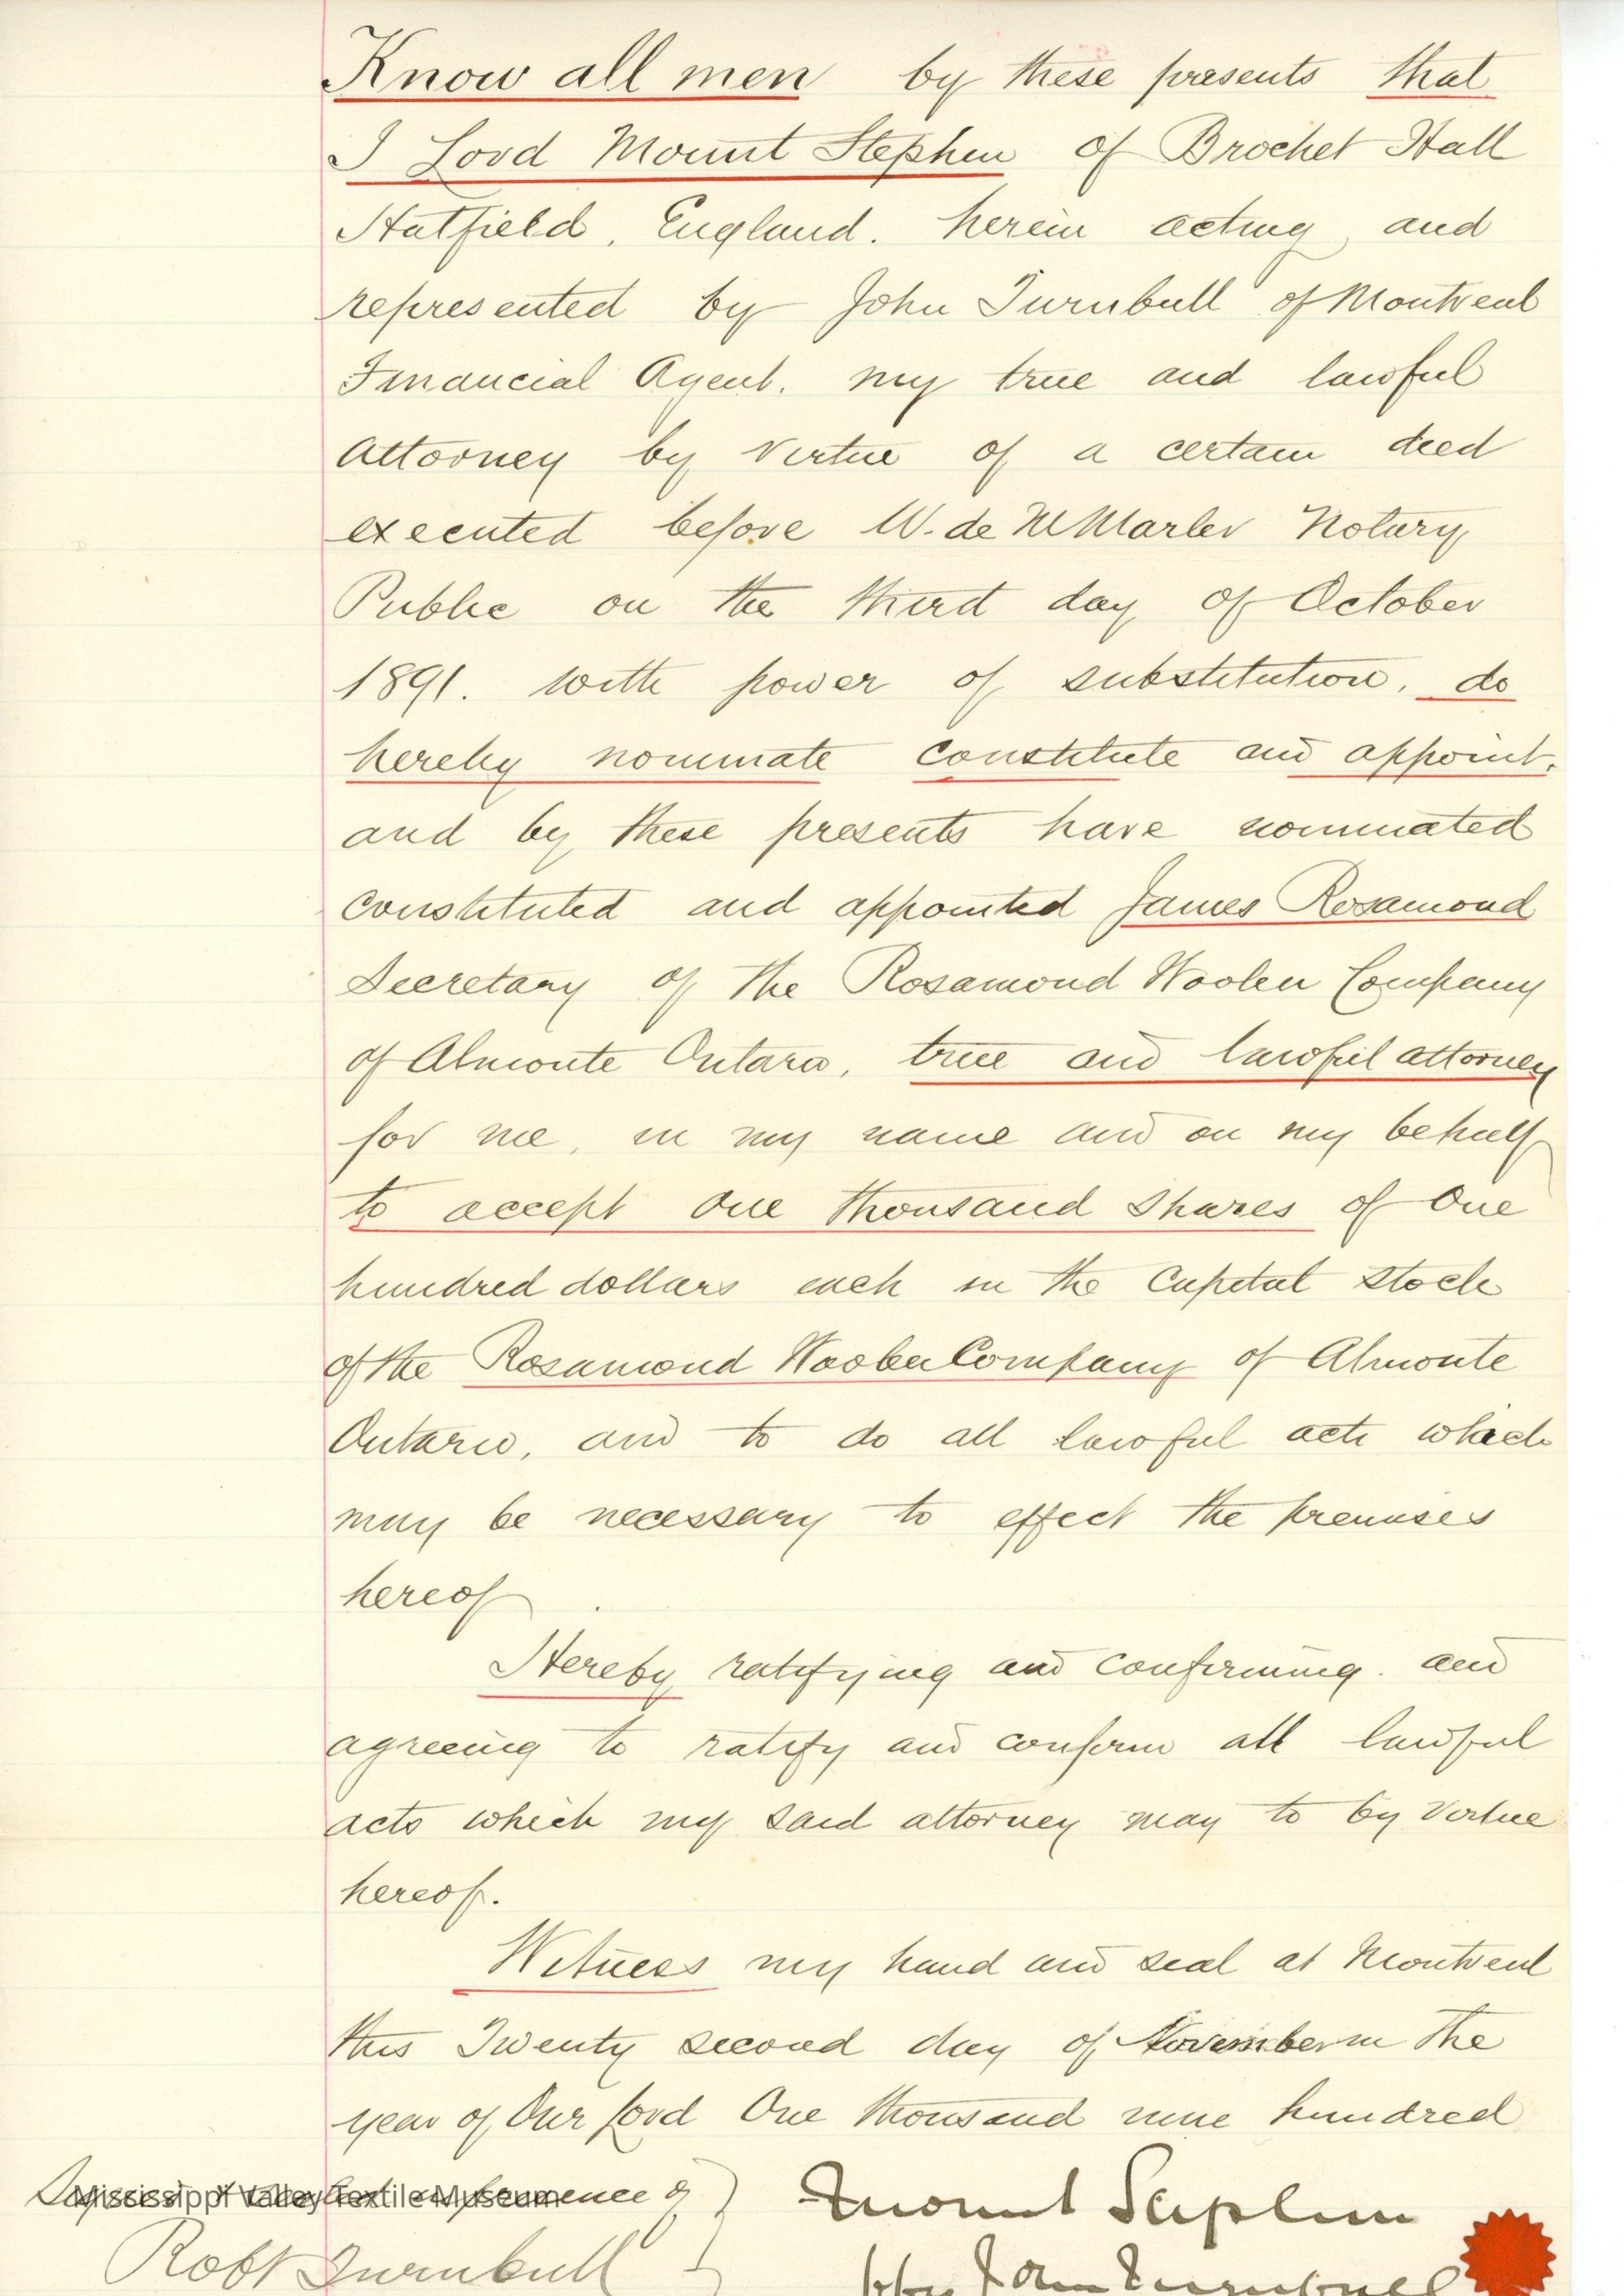 Know all men by these presents that
I Lord Mount Stephen of Brochet Hall
Hatfield, England. herein acting and
represented by John Turnbull of Montreal
Financial Agent. my true and lawful
Attorney by Virtue of a certain deed
executed before W. de M Marler Notary
Public on the third day of October
1891. with power of substitution, do
hereby nominate constitute and appoint,
and by these presents have nominated
constituted and appointed James Rosamond
Secretary of the Rosamond Woolen Company
of Almonte Ontario, true and lawful attorney
for me, in my name and on my behalf
to accept One thousand Shares of One
hundred dollars each in the Capital Stock
of the Rosamond Woolen Company of Almonte
Ontario, and to do all lawful acts which
may be necessary to effect the premises
hereof
Hereby ratifying and confirming. and
agreeing to ratify and confirm all lawful
acts which my said attorney may to by Virtue
hereof.
Witness my hand and seal at Montreal
this Twenty second day of November in the
year of Our Lord One thousand nine hundred
Mississippi Valley Textile Museum
presence of
Mount Stephen
Robt Turnbull
by John Turnbull